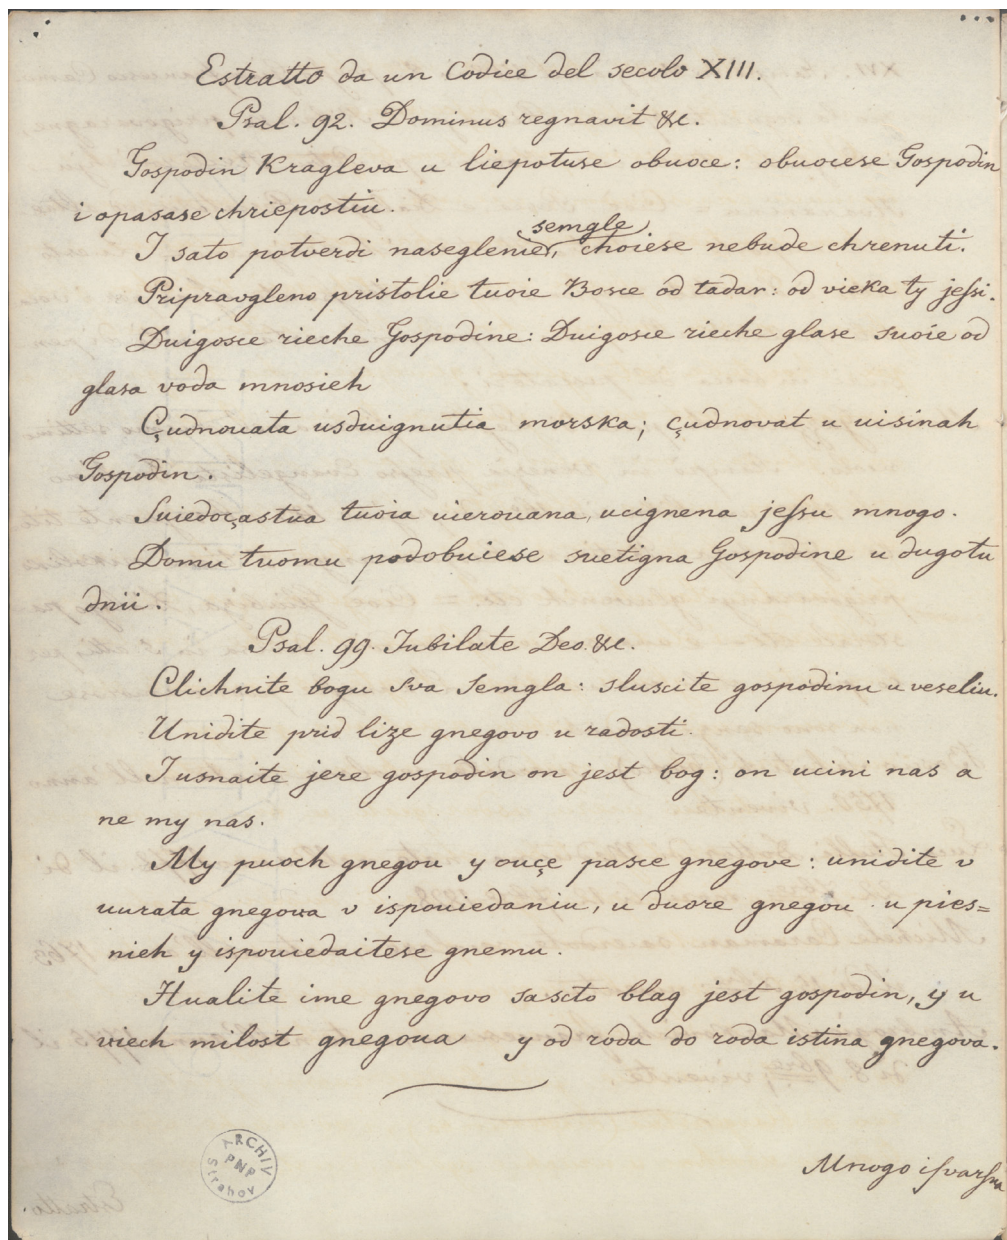 Estratto da un Codice del secolo XIII.
Psal. 92. Dominus regnavit &c.
Gospodin Kragleva u liepotuse obuoce: obuocese Gospodin
i opasase chriepostiu.
semgle
I sato potverdi naseglenie, choiese nebude chrenuti.
Pripravgleno pristolie tuoie Bosce od tadar: od vieka ty jessi.
Duigosce rieche Gospodine: Duigosce rieche glase suoie od
glasa voda mnosieh
Çudnouata usduignutia morska; çudnovat u uisinah
Gospodin.
Suiedoçastua tuoia uierouana, ucignena jessu mnogo.
Domu tuomu podobuiese suetigna Gospodine u dugotu
dnii.
Psal. 99. Iubilate Deo. &c.
Clichnite bogu sva semgla: sluscite gospodinu u veseliu.
Unidite prid lize gnegovo u radosti.
I usnaite jere gospodin on jest bog: on ucini nas a
ne my nas.
My puoch gnegou y ouçe pasce gnegove: unidite v
uurata gnegowa v ispouiedaniu, u duore gnegou u pies=
nieh y ispouiedaitese gnemu.
Hualite ime gnegovo sascto blag jest gospodin, y u
viech milost gnegoua y od roda do roda istina gnegova.
ARCHIV
PNP
Strahov
Mnogo isvarsna